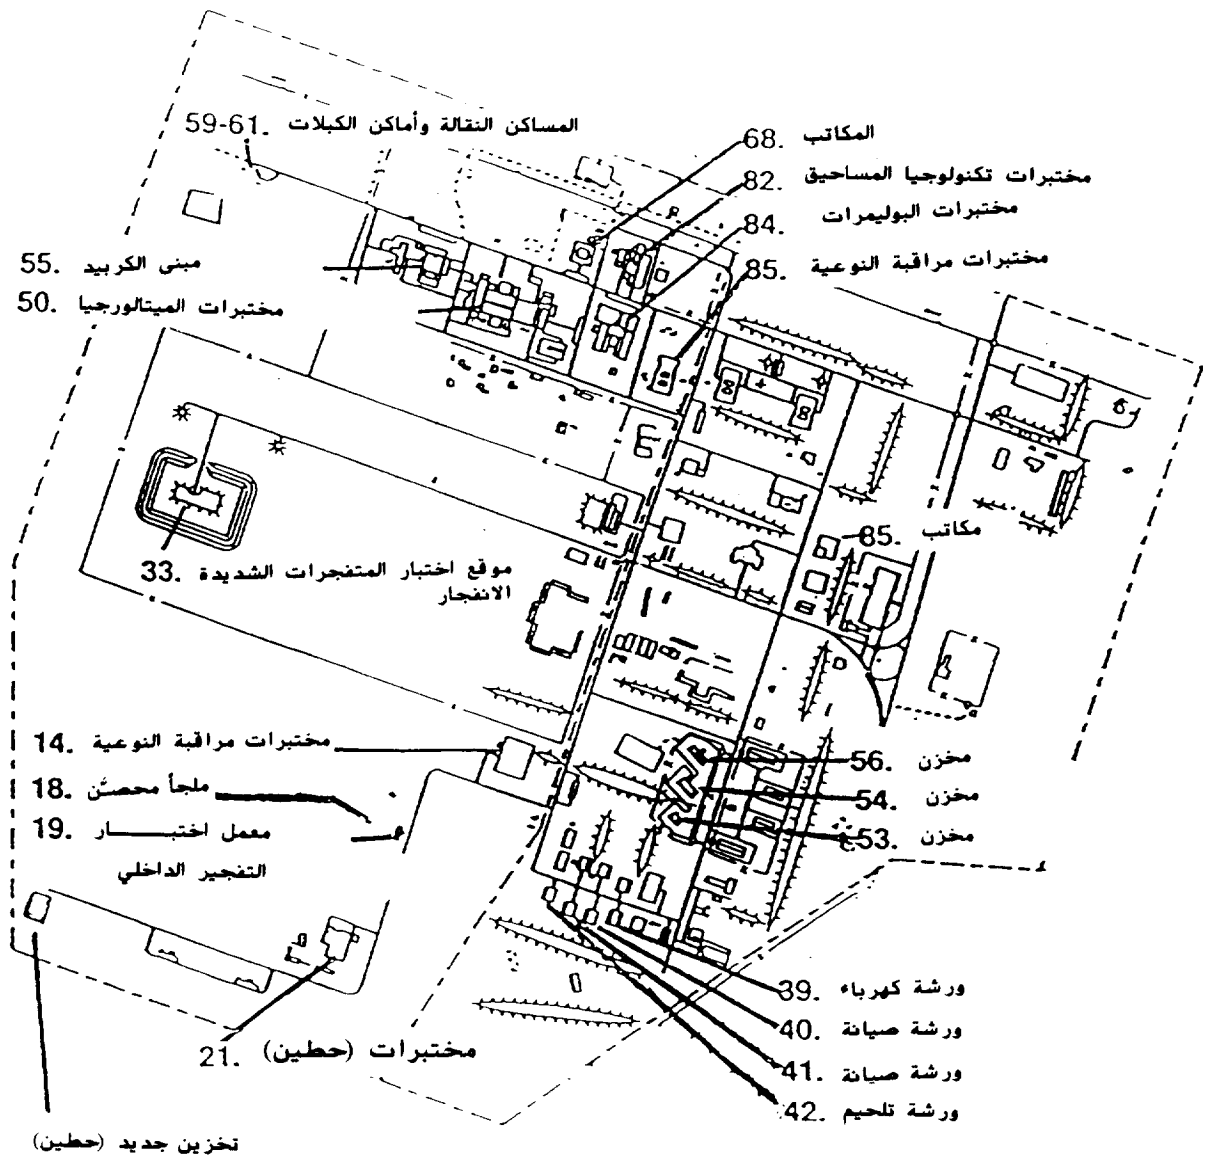 59-61. المساكن النقالة وأماكن الكبلات
68. المكاتب
82. مختبرات تكنولوجيا المساحيق
84. مختبرات البوليمرات
85. مختبرات مراقبة النوعية
55. مبنى الكربيد
50. مختبرات الميتالورجيا
85. مكاتب
33. موقع اختبار المتفجرات الشديدة
الانفجار
14. مختبرات مراقبة النوعية
18. ملجأ محصَّن
19. معمل اختبـــار
التفجير الداخلي
56. مخزن
54. مخزن
53. مخزن
39. ورشة كهرباء
40. ورشة صيانة
41. ورشة صيانة
42. ورشة تلحيم
21. مختبرات (حطين)
تخزين جديد (حطين)